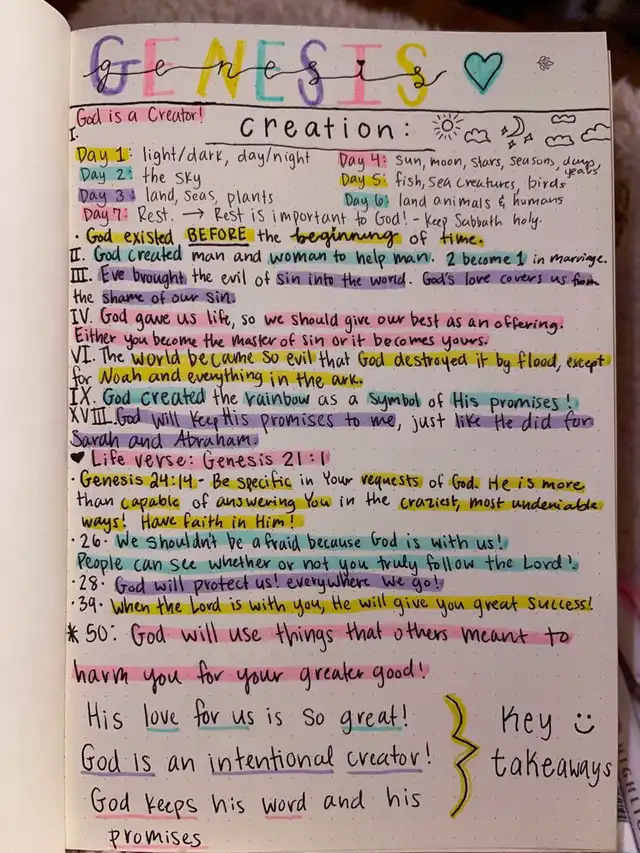 GENESIS
genesis
God is a Creator!
I.
Creation:
Day 1: light/dark, day/night
Day 2: the sky
Day 3: land, seas, plants
Day 4: sun, moon, stars, seasons, days, years
Day 5: fish, sea creatures, birds
Day 6: land animals & humans
Day 7: Rest. → Rest is important to God! - Keep Sabbath holy.
· God existed BEFORE the beginning of time.
II. God created man and woman to help man. 2 become 1 in marriage.
III. Eve brought the evil of sin into the world. God's love covers us from
the shame of our sin.
IV. God gave us life, so we should give our best as an offering.
Either you become the master of sin or it becomes yours.
VI. The world became so evil that God destroyed it by flood, except
for Noah and everything in the ark.
IX. God created the rainbow as a symbol of His promises!
XVIII. God will keep His promises to me, just like He did for
Sarah and Abraham.
♥ Life verse: Genesis 21:1
· Genesis 24:14 - Be specific in your requests of God. He is more
than capable of answering you in the craziest, most undeniable
ways! Have faith in Him!
· 26· We shouldn't be afraid because God is with us!
People can see whether or not you truly follow the Lord!
· 28· God will protect us! everywhere we go!
· 39· When the Lord is with you, He will give you great success!
* 50: God will use things that others meant to
harm you for your greater good!
His love for us is so great!
God is an intentional creator!
God keeps his word and his
promises
Key :)
takeaways